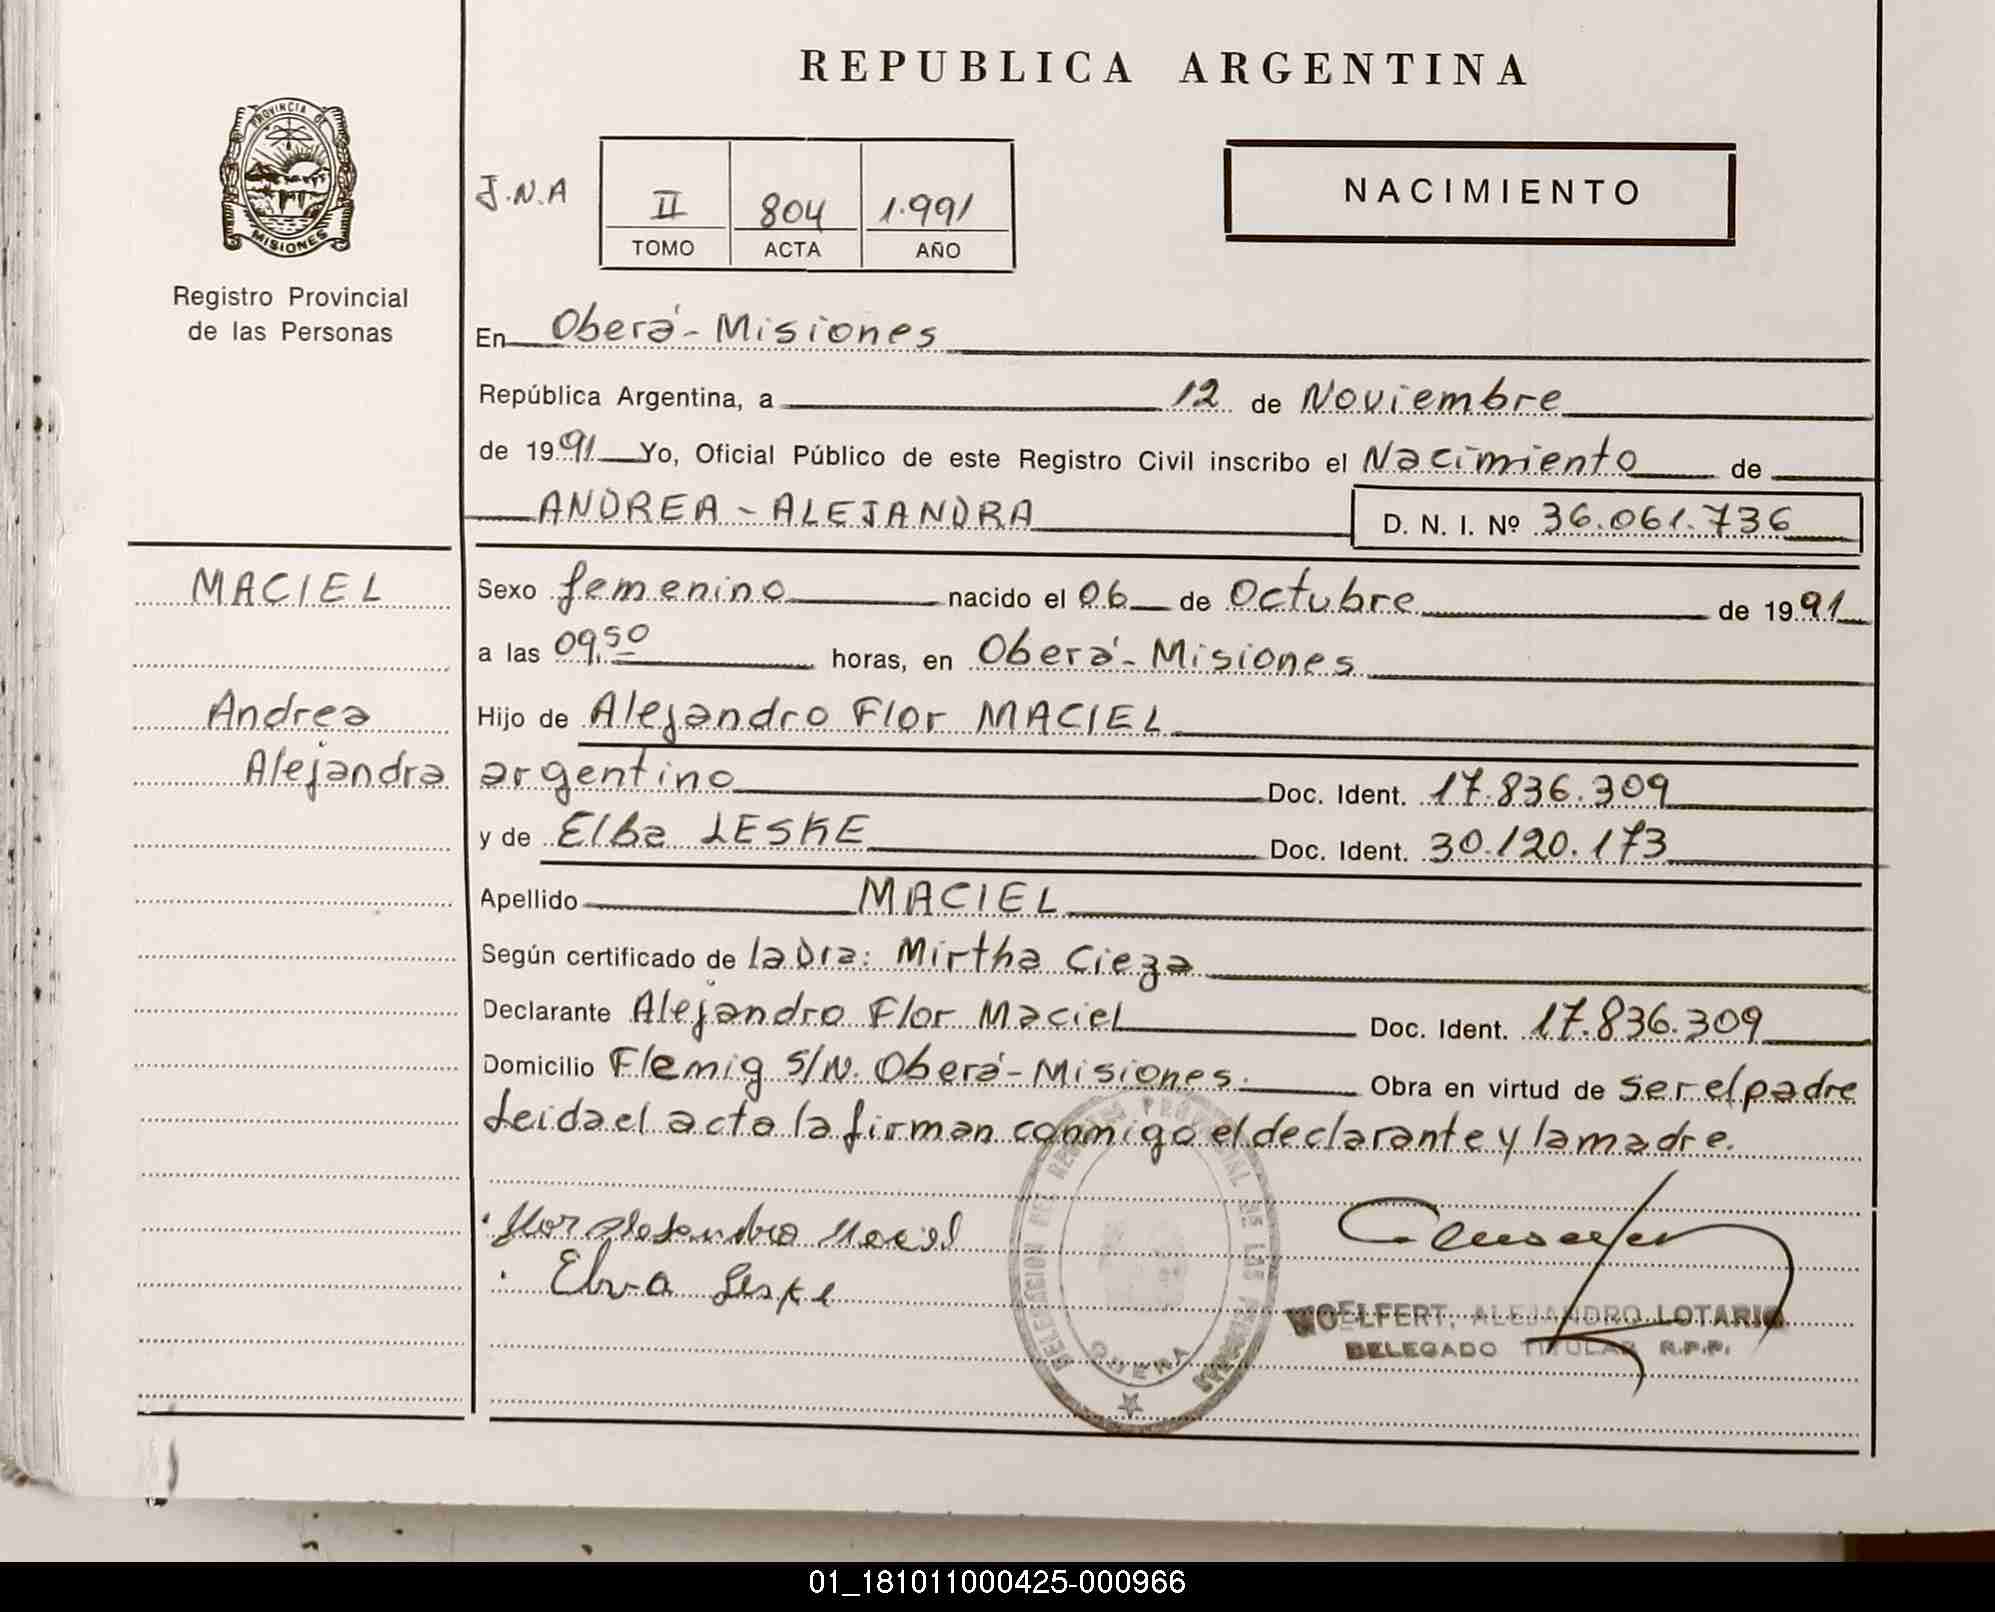 REPUBLICA ARGENTINA
PROVINCIA DE
MISIONES
Registro Provincial
de las Personas
J.N.A
II 804 1.991
TOMO ACTA AÑO
NACIMIENTO
En Oberá - Misiones
República Argentina, a 12 de Noviembre
de 1991 Yo, Oficial Público de este Registro Civil inscribo el Nacimiento de
ANDREA - ALEJANDRA D. N. I. Nº 36.061.736
MACIEL
Andrea
Alejandra
Sexo femenino nacido el 06 de Octubre de 1991
a las 09,50 horas, en Oberá - Misiones
Hijo de Alejandro Flor MACIEL
argentino Doc. Ident. 17.836.309
y de Elba LESKE Doc. Ident. 30.120.173
Apellido MACIEL
Según certificado de la Dra: Mirtha Cieza
Declarante Alejandro Flor Maciel Doc. Ident. 17.836.309
Domicilio Flemig S/N. Oberá - Misiones. Obra en virtud de ser el padre
Leida el acta la firman conmigo el declarante y la madre.
Flor Alejandro Maciel
Elva Leske
DELEGACION DEL REGISTRO PROVINCIAL DE LAS PERSONAS
WOELFERT, ALEJANDRO LOTARIO
DELEGADO TITULAR R.P.P.
01_181011000425-000966